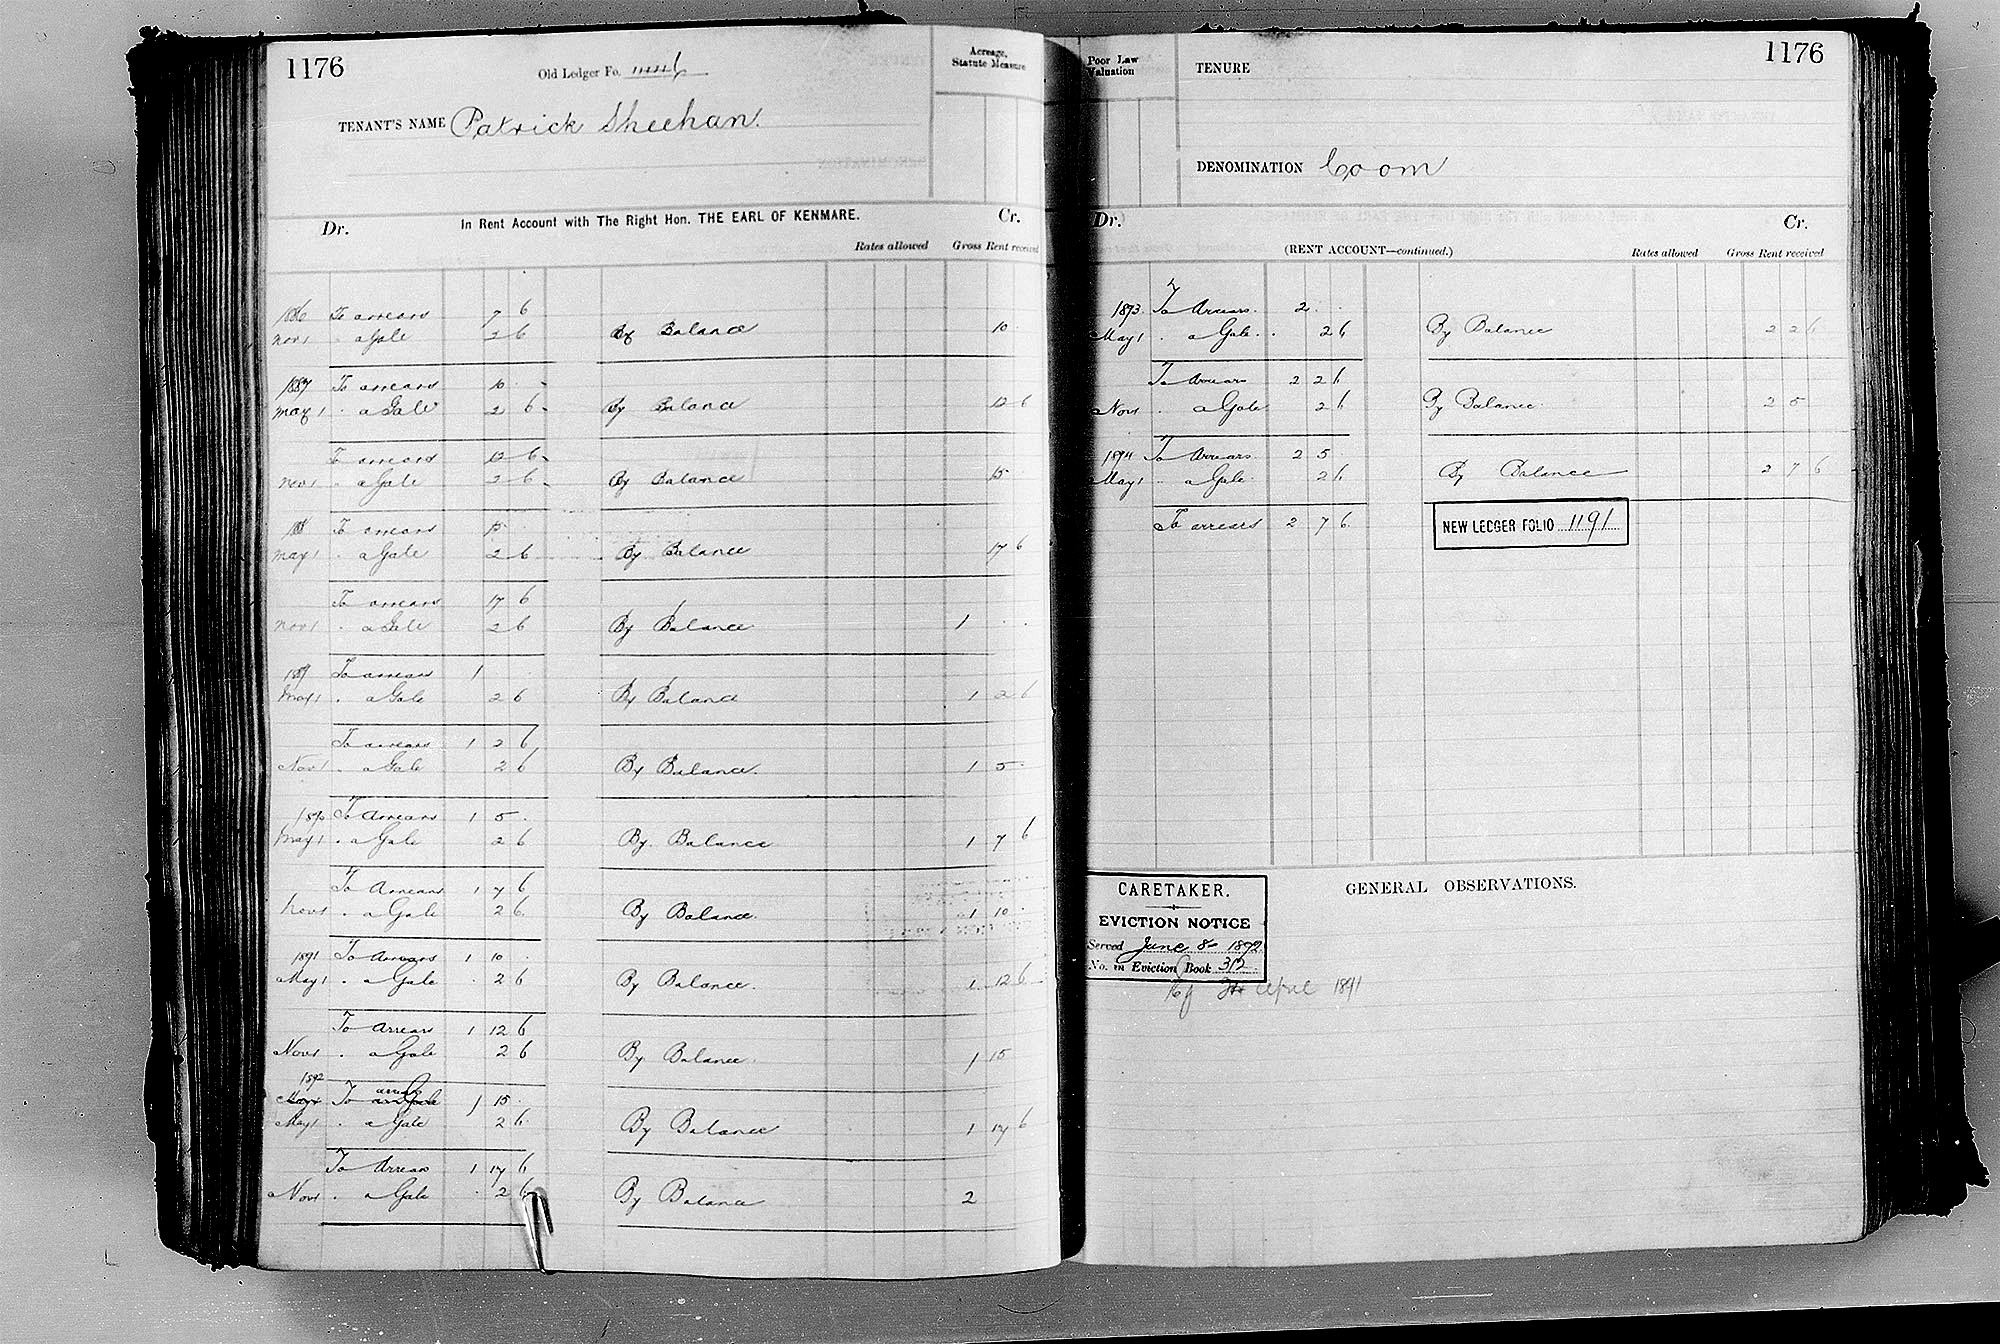 1176
Old Ledger Fo.
Acreage, Statute Measure
TENANT'S NAME Patrick Sheehan.
In Rent Account with The Right Hon. THE EARL OF KENMARE.
Dr. Cr.
Rates allowed Gross Rent received
1886 To arrears 7 6
Nov 1 . a Gale 2 6 By Balance 10
1887 To arrears 10
May 1 . a Gale 2 6 By Balance 12 6
To arrears 12 6
Nov 1 . a Gale 2 6 By Balance 15
188 To arrears 15
May 1 . a Gale 2 6 By Balance 17 6
To arrears 17 6
Nov 1 . a Gale 2 6 By Balance 1 . .
189 To arrears 1
May 1 . a Gale 2 6 By Balance 1 2 6
To arrears 1 2 6
Nov 1 . a Gale 2 6 By Balance. 1 5
1890 To Arrears 1 5
May 1 . a Gale 2 6 By Balance 1 7 6
To Arrears 1 7 6
Nov 1 . a Gale 2 6 By Balance. 1 10
1891 To Arrears 1 10
May 1 . a Gale . 2 6 By Balance. 1 12 6
To Arrears 1 12 6
Nov 1 . a Gale 2 6 By Balance. 1 15
1892
To arrears 1 15
May 1 . a Gale 2 6 By Balance 1 17 6
To Arrears 1 17 6
Nov 1 . a Gale . 2 6 By Balance 2
Poor Law Valuation
TENURE
1176
DENOMINATION Coom
Dr. Cr.
(RENT ACCOUNT—continued.)
Rates allowed Gross Rent received
1893. To Arrears. 2 . .
May 1 . a Gale. . 2 6 By Balance 2 2 6
To Arrears 2 2 6
Nov 1 . a Gale. 2 6 By Balance. 2 5
1894 To Arrears 2 5
May 1 . a Gale. 2 6 By Balance 2 7 6
To arrears 2 7 6
NEW LEDGER FOLIO 1191
GENERAL OBSERVATIONS.
CARETAKER.
EVICTION NOTICE
Served June 8 1892.
No. in Eviction Book 312
April 1891